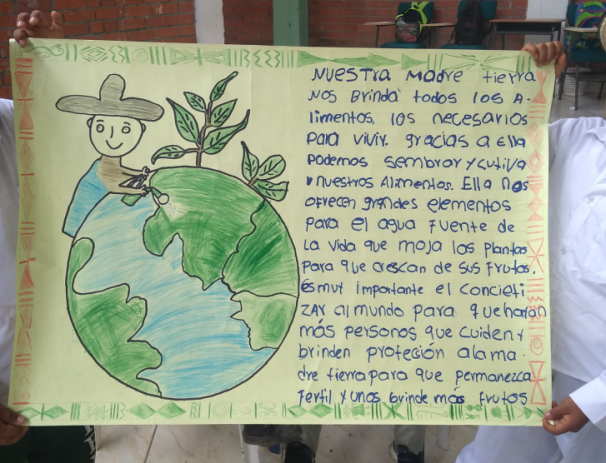 NUESTra Madre tierra
NOS Brinda todos los A-
limentos, los necesarios
para vivir. gracias a Ella
Podemos sembrar y cutiva
r nuestros Alimentos. Ella nos
ofrecen grandes elementos
Para el agua Fuente de
La vida que moja las plantas
Para que crescan de sus Frutos.
es muy importante el concieti
ZAr al mundo para que haran
más personas que cuiden y
brinden protección a la ma-
dre tierra para que permanezca
Fertil y unos brinde más frutos